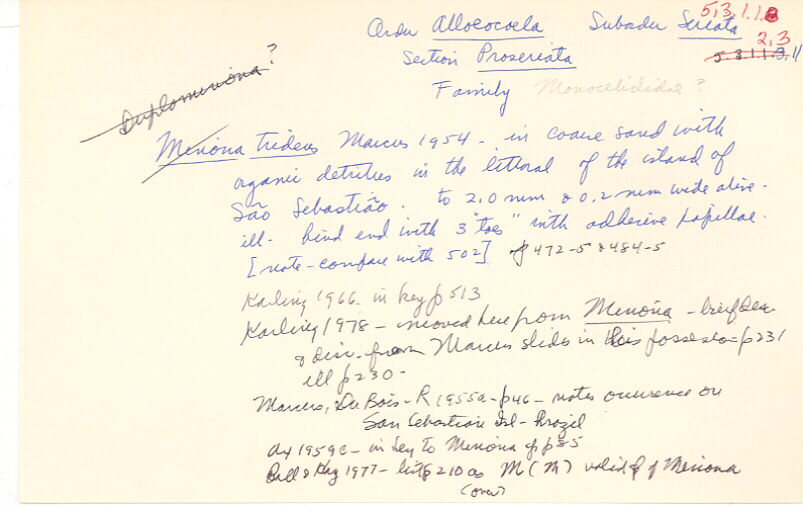 Order Alloeocoela Suborder Seriata 5.3.1.1.8
Section Proseriata 2,3 5.3.1.1.3.11
Family Monocelididae ?
Duplominona ?
Minona tridens Marcus 1954 - in coarse sand with
organic detritus in the littoral of the island of
São Sebastião. to 2.0 mm & 0.2 mm wide alive.
ill. hind end with 3 "toes" with adhesive papillae.
[note - compare with 502] p 472-5 & 484-5
Karling 1966 in key p 513
Karling 1978 - moved here from Minona - brief desc
& disc. from Marcus slides in his possession p 231
ill p 230 -
Marcus, Du Bois-R 1955a - p 46 - notes occurence on
San Sebastian Isl - Brazil
Ax 1959c - in key to Minona sp p 85
Ball & Hay 1977 - list p 210 as M (M) valid sp of Minona
(over)